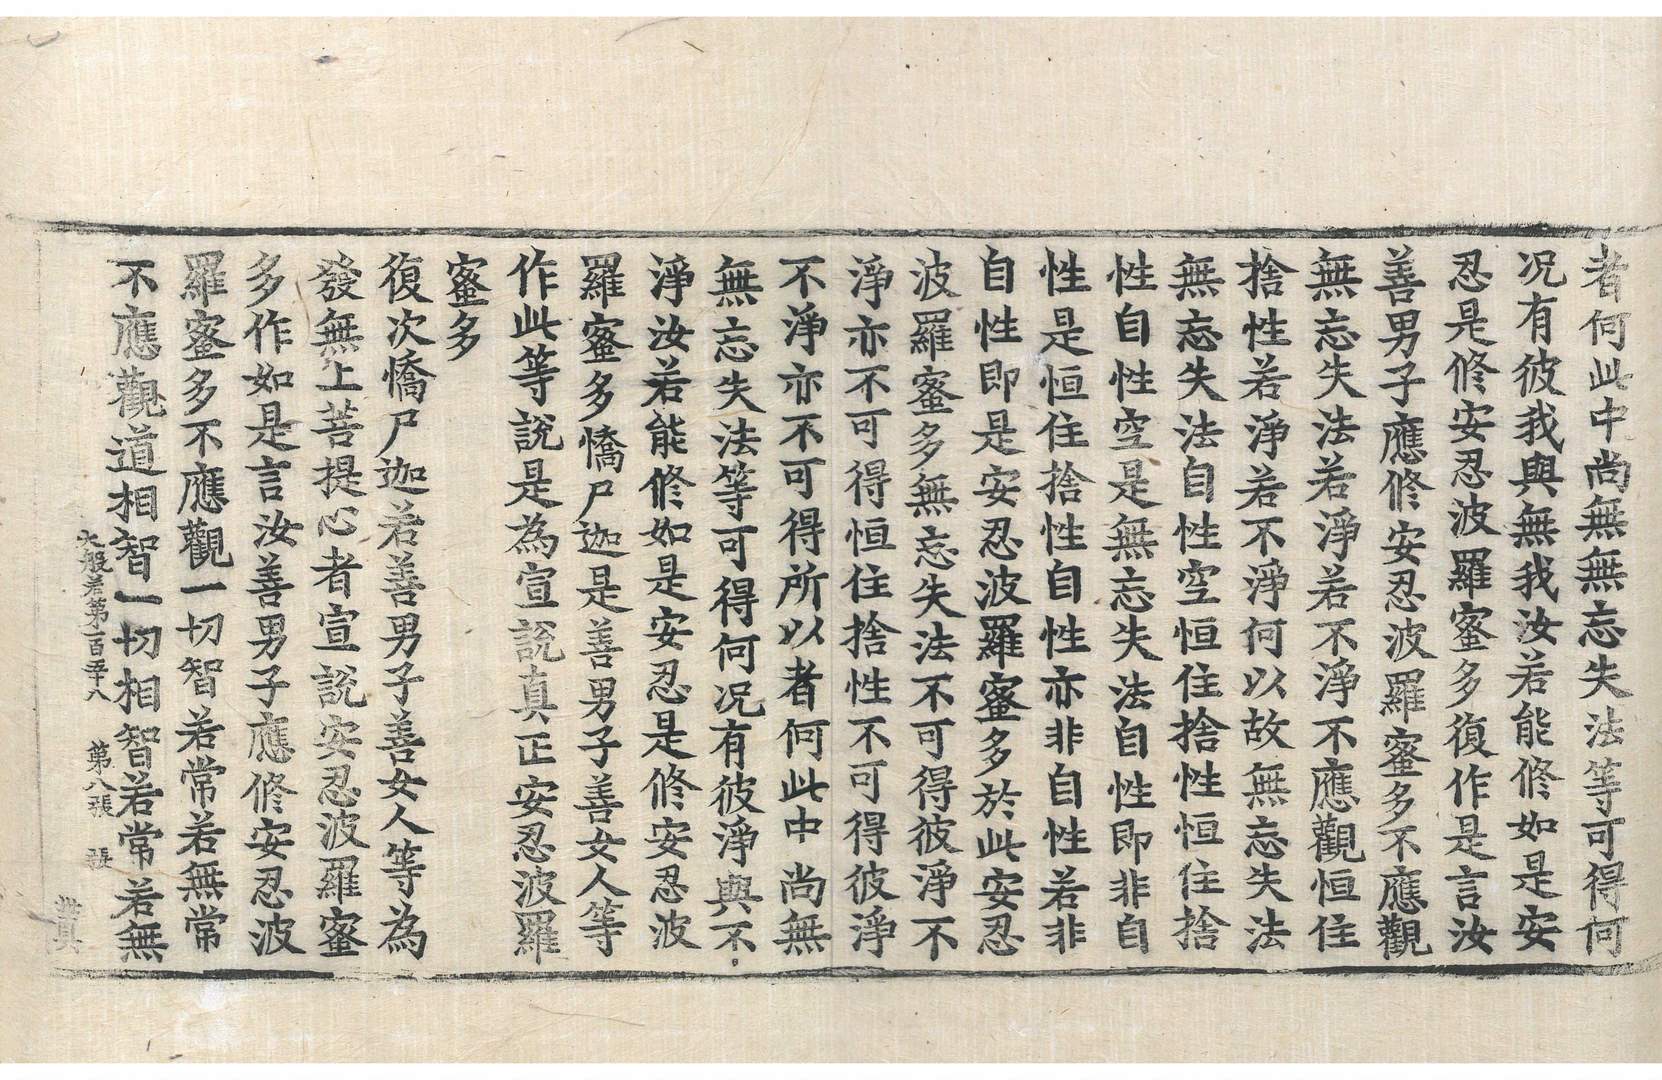 者何此中尚無無忘失法等可得何
况有彼我與無我汝若能修如是安
忍是修安忍波羅蜜多復作是言汝
善男子應修安忍波羅蜜多不應觀
無忘失法若淨若不淨不應觀恒住
捨性若淨若不淨何以故無忘失法
無忘失法自性空恒住捨性恒住捨
性自性空是無忘失法自性即非自
性是恒住捨性自性亦非自性若非
自性即是安忍波羅蜜多於此安忍
波羅蜜多無忘失法不可得彼淨不
淨亦不可得恒住捨性不可得彼淨
不淨亦不可得所以者何此中尚無
無忘失法等可得何况有彼淨與不
淨汝若能修如是安忍是修安忍波
羅蜜多憍尸迦是善男子善女人等
作此等說是為宣說真正安忍波羅
蜜多
復次憍尸迦若善男子善女人等為
發無上菩提心者宣說安忍波羅蜜
多作如是言汝善男子應修安忍波
羅蜜多不應觀一切智若常若無常
不應觀道相智一切相智若常若無
大般若第一百五十八 第八張 張